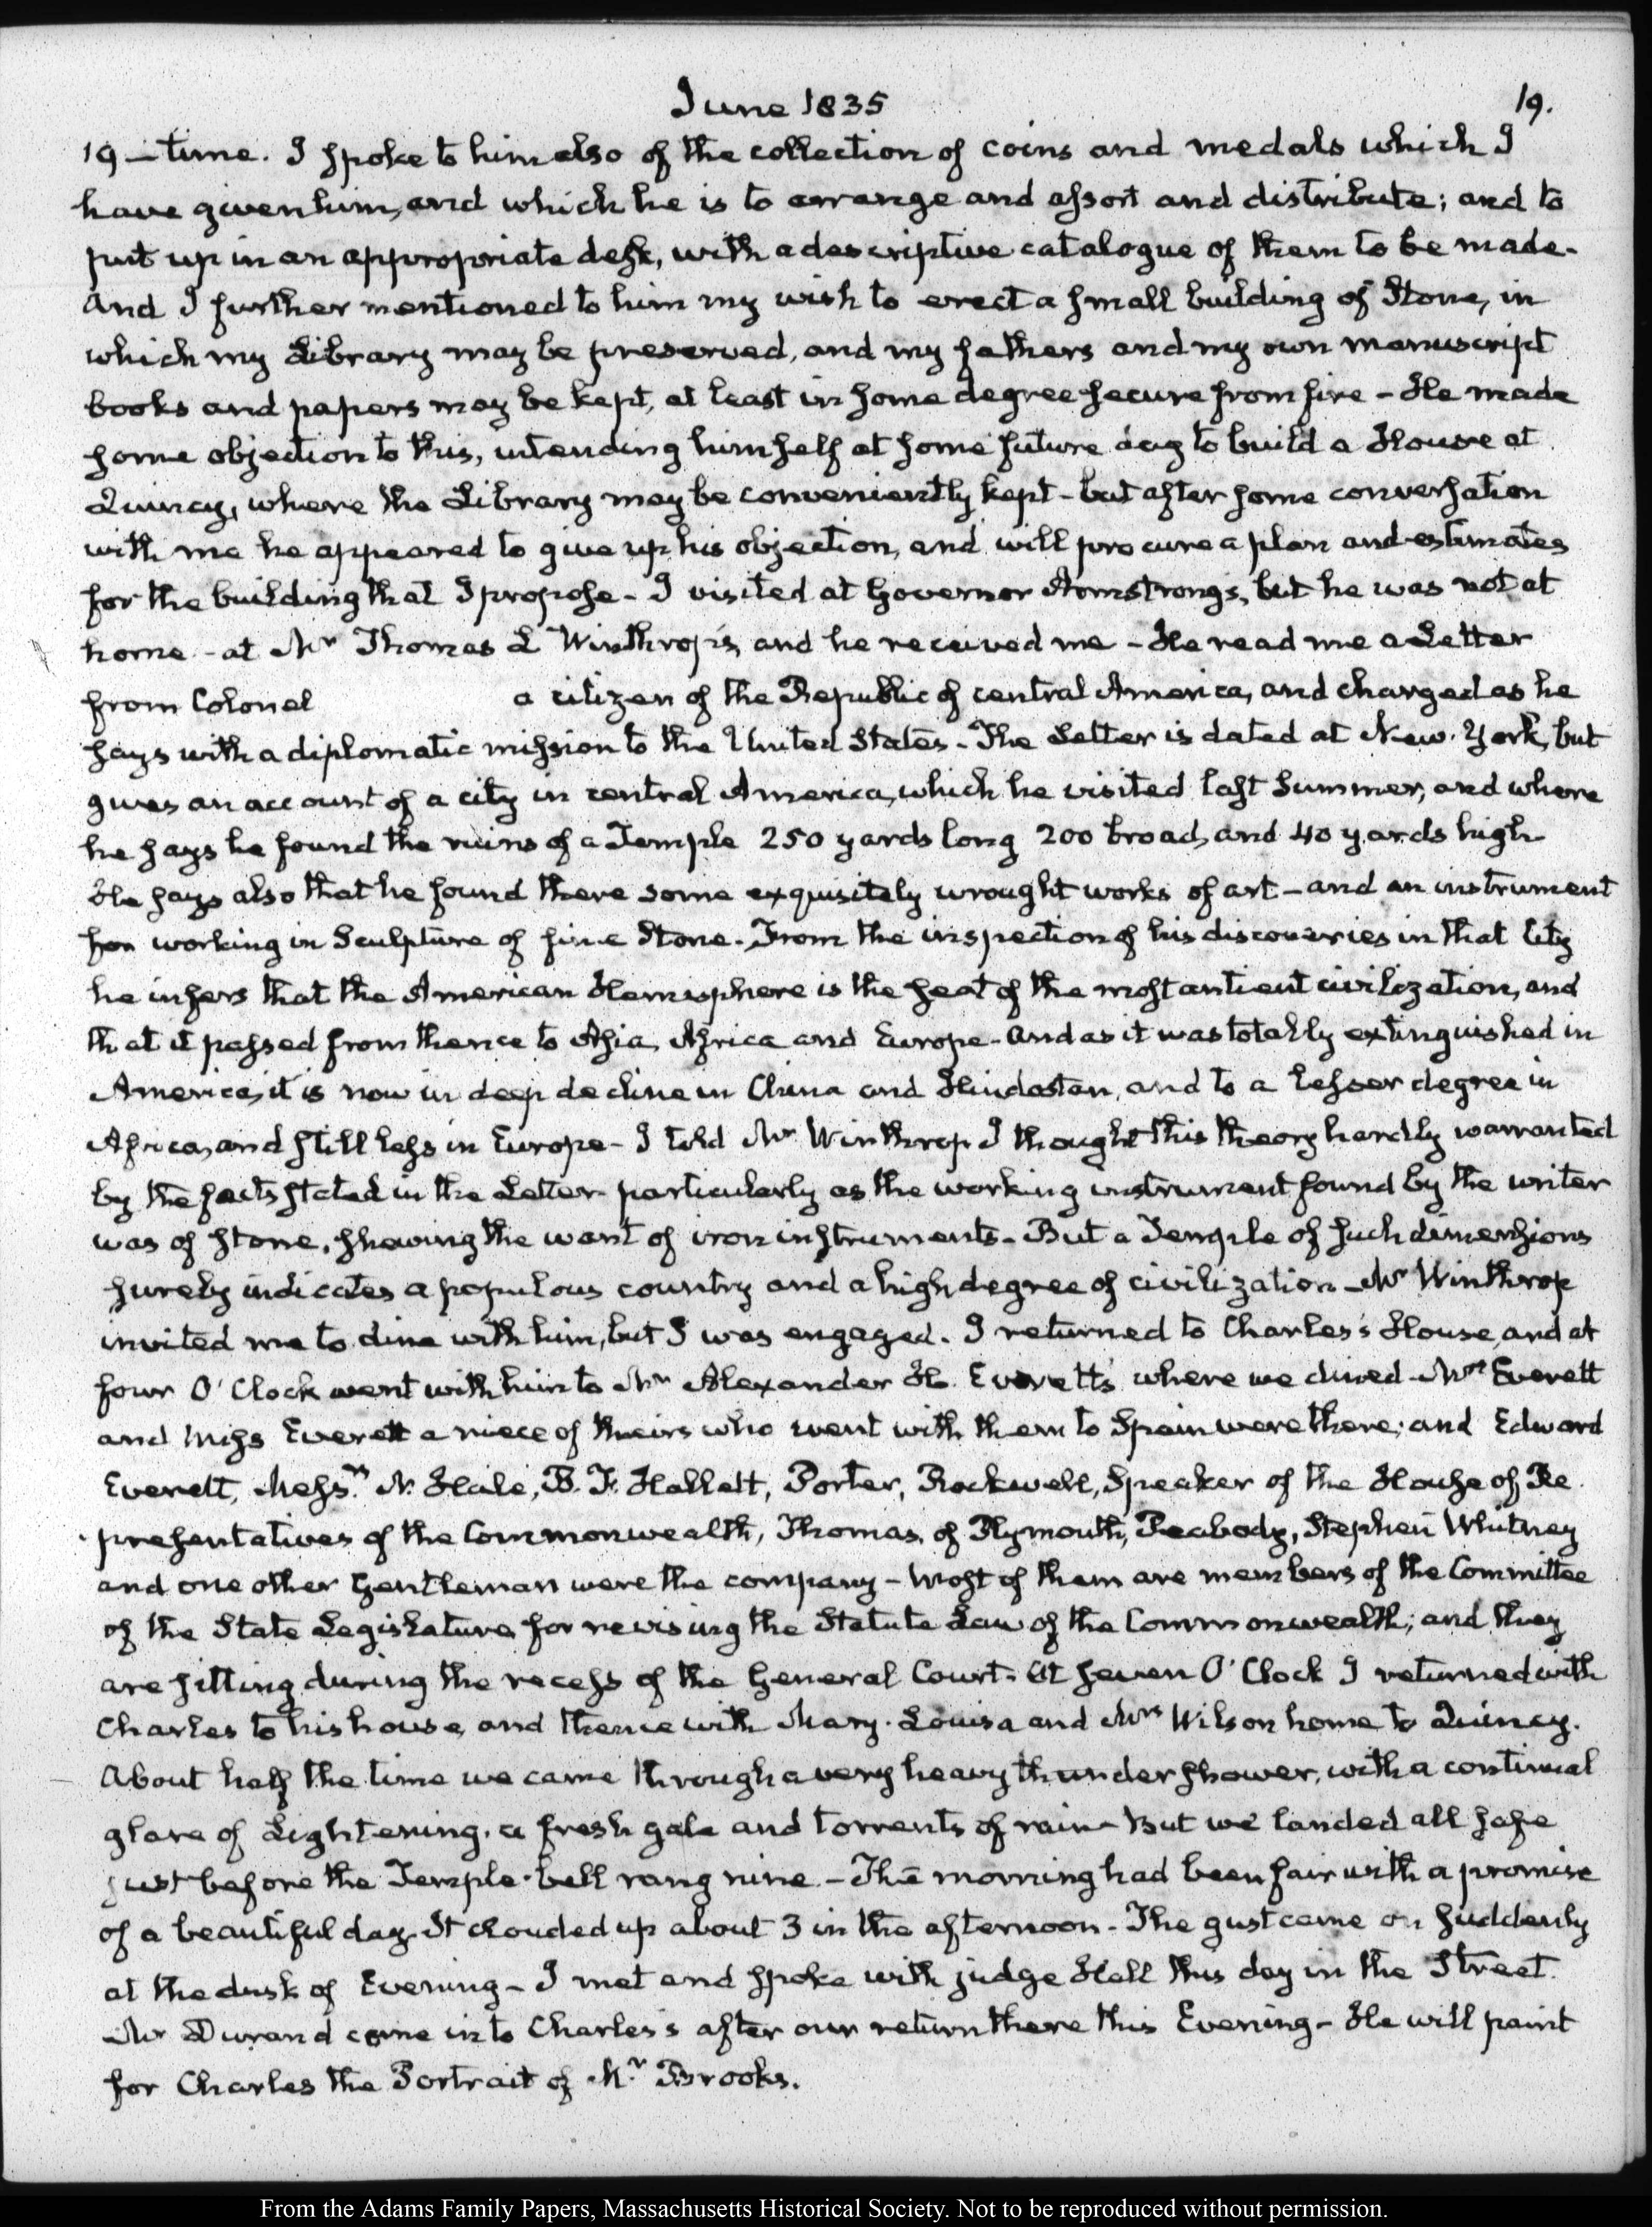 June 1835
19.
19 – time. I spoke to him also of the collection of coins and medals which I
have given him, and which he is to arrange and assort and distribute; and to
put up in an appropriate desk, with a descriptive catalogue of them to be made.
And I further mentioned to him my wish to erect a small building of Stone, in
which my Library may be preserved, and my fathers and my own manuscript
books and papers may be kept, at least in some degree secure from fire – He made
some objection to this, intending himself at some future day to build a House at
Quincy, where the Library may be conveniently kept – but after some conversation
with me he appeared to give up his objection, and will procure a plan and estimates
for the building that I propose – I visited at Governor Armstrong's, but he was not at
home – at Mr Thomas L Winthrop's, and he received me – He read me a Letter
from Colonel a citizen of the Republic of central America, and charged as he
says with a diplomatic mission to the United States – The Letter is dated at New-York, but
gives an account of a city in central America, which he visited last Summer, and where
he says he found the ruins of a Temple 250 yards long 200 broad, and 40 yards high
He says also that he found there some exquisitely wrought works of art – and an instrument
for working in Sculpture of fine Stone. From the inspection of his discoveries in that City
he infers that the American Hemisphere is the seat of the most antient civilization, and
that it passed from thence to Asia, Africa and Europe – and as it was totally extinguished in
America, it is now in deep decline in China and Hindostan, and to a lesser degree in
Africa, and still less in Europe – I told Mr Winthrop I thought this theory hardly warranted
by the facts stated in the Letter particularly as the working instrument found by the writer
was of stone, shewing the want of iron instruments – But a Temple of such dimensions
surely indicates a populous country and a high degree of civilization – Mr Winthrop
invited me to dine with him, but I was engaged. I returned to Charles's House, and at
four O'Clock went with him to Mr Alexander H. Everett's where we dined – Mrs Everett
and Miss Everett a niece of theirs who went with them to Spain were there; and Edward
Everett, Messrs. N. Hale, B. F. Hallett, Porter, Rockwell, Speaker of the House of Re
presentatives of the Commonwealth, Thomas, of Plymouth, Peabody, Stephen Whitney
and one other Gentleman were the company – most of them are members of the Committee
of the State Legislature for revising the Statute Law of the Commonwealth; and they
are sitting during the recess of the General Court. At seven O'Clock I returned with
Charles to his house, and thence with Mary-Louisa and Mrs Wilson home to Quincy.
About half the time we came through a very heavy thunder shower, with a continual
glare of Lightening, a fresh gale and torrents of rain – But we landed all safe
just before the Temple-bell rang nine – The morning had been fair with a promise
of a beautiful day. It clouded up about 3 in the afternoon – The gust came on suddenly
at the dusk of Evening – I met and spoke with judge Hall this day in the Street.
Mr Durand came in to Charles's after our return there this Evening – He will paint
for Charles the Portrait of Mr. Brooks.
From the Adams Family Papers, Massachusetts Historical Society. Not to be reproduced without permission.